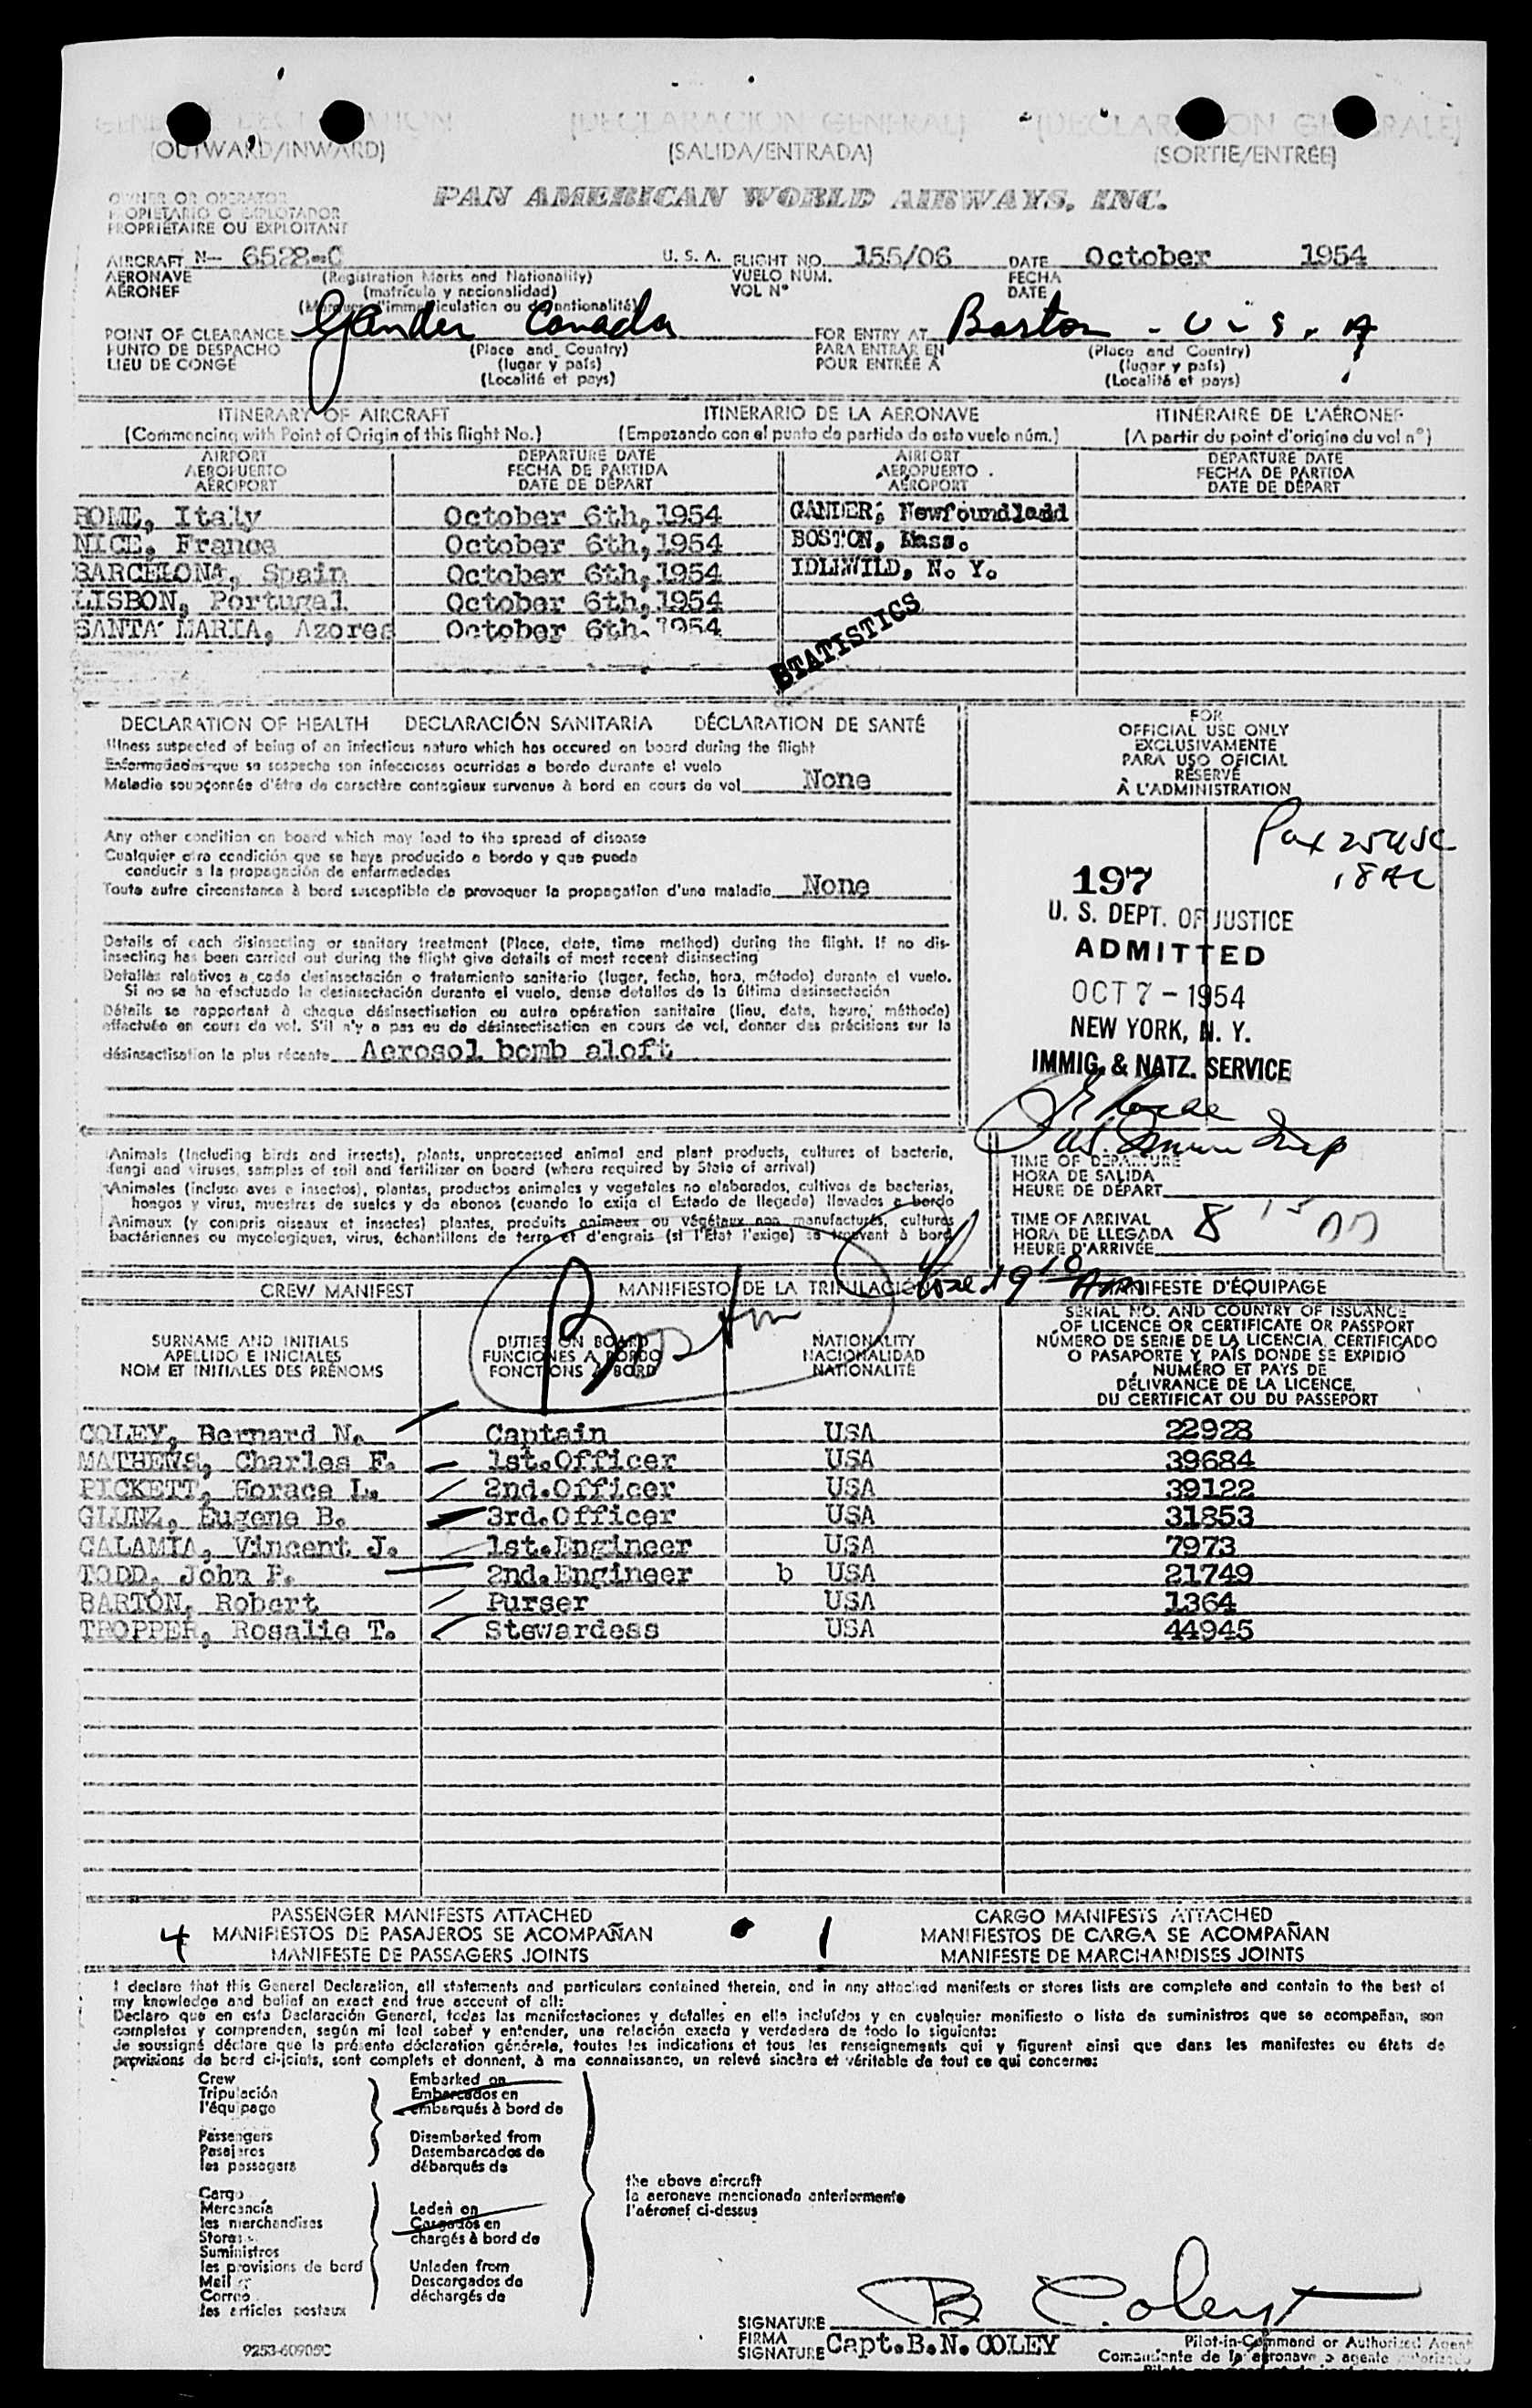 GENERAL DECLARATION (DECLARACION GENERAL) (DECLARATION GENERALE)
(OUTWARD/INWARD) (SALIDA/ENTRADA) (SORTIE/ENTRÉE)
OWNER OR OPERATOR
PROPIETARIO O EXPLOTADOR
PROPRIÉTAIRE OU EXPLOITANT
PAN AMERICAN WORLD AIRWAYS, INC.
AIRCRAFT N- 6528-C U. S. A. FLIGHT NO. 155/06 DATE October 1954
AERONAVE (Registration Marks and Nationality) VUELO NÚM. FECHA
AÉRONEF (matrícula y nacionalidad) VOL N° DATE
(Marques d'immatriculation ou de nationalité)
POINT OF CLEARANCE Gander Canada FOR ENTRY AT Boston - U.S.A
PUNTO DE DESPACHO (Place and Country) PARA ENTRAR EN (Place and Country)
LIEU DE CONGÉ (lugar y país) POUR ENTRÉE À (lugar y país)
(Localité et pays) (Localité et pays)
ITINERARY OF AIRCRAFT ITINERARIO DE LA AERONAVE ITINÉRAIRE DE L'AÉRONEF
(Commencing with Point of Origin of this flight No.) (Empezando con el punto de partida de este vuelo núm.) (A partir du point d'origine du vol n°)
AIRPORT DEPARTURE DATE AIRPORT DEPARTURE DATE
AEROPUERTO FECHA DE PARTIDA AEROPUERTO FECHA DE PARTIDA
AÉROPORT DATE DE DÉPART AÉROPORT DATE DE DÉPART
ROME, Italy October 6th, 1954 GANDER, Newfoundladd
NICE, France October 6th, 1954 BOSTON, Mass.
BARCELONA, Spain October 6th, 1954 IDLEWILD, N. Y.
LISBON, Portugal October 6th, 1954
SANTA MARIA, Azores October 6th, 1954
STATISTICS
DECLARATION OF HEALTH DECLARACIÓN SANITARIA DÉCLARATION DE SANTÉ
Illness suspected of being of an infectious nature which has occured on board during the flight
Enfermedades que se sospecha son infecciosas ocurridas a bordo durante el vuelo
Maladie soupçonnée d'être de caractère contagieux survenue à bord en cours de vol None
Any other condition on board which may lead to the spread of disease
Cualquier otra condición que se haya producido a bordo y que pueda
conducir a la propagación de enfermedades
Toute autre circonstance à bord susceptible de provoquer la propagation d'une maladie None
Details of each disinsecting or sanitary treatment (Place, date, time method) during the flight. If no dis-
insecting has been carried out during the flight give details of most recent disinsecting
Detalles relativos a cada desinsectación o tratamiento sanitario (lugar, fecha, hora, método) durante el vuelo.
Si no se ha efectuado la desinsectación durante el vuelo, dense detalles de la última desinsectación
Détails se rapportant à chaque désinsectisation ou autre opération sanitaire (lieu, date, heure, méthode)
effectuée en cours de vol. S'il n'y a pas eu de désinsectisation en cours de vol, donner des précisions sur la
désinsectisation la plus récente Aerosol bomb aloft
FOR
OFFICIAL USE ONLY
EXCLUSIVAMENTE
PARA USO OFICIAL
RÉSERVÉ
À L'ADMINISTRATION
Pax 25 USC
18 AC
197
U. S. DEPT. OF JUSTICE
ADMITTED
OCT 7 - 1954
NEW YORK, N. Y.
IMMIG. & NATZ. SERVICE
Animals (Including birds and insects), plants, unprocessed animal and plant products, cultures of bacteria,
fungi and viruses, samples of soil and fertilizer on board (where required by State of arrival)
Animales (incluso aves e insectos), plantas, productos animales y vegetales no elaborados, cultivos de bacterias,
hongos y virus, muestras de suelos y de abonos (cuando lo exija el Estado de llegada) llevados a bordo
Animaux (y compris oiseaux et insectes) plantes, produits animaux ou végétaux non manufacturés, cultures
bactériennes ou mycologiques, virus, échantillons de terre et d'engrais (si l'Etat l'exige) se trouvant à bord
TIME OF DEPARTURE
HORA DE SALIDA
HEURE DE DÉPART
TIME OF ARRIVAL 8 15
HORA DE LLEGADA
HEURE D'ARRIVÉE
CREW MANIFEST MANIFIESTO DE LA TRIPULACIÓN MANIFESTE D'ÉQUIPAGE
Boston
SURNAME AND INITIALS DUTIES ON BOARD NATIONALITY
APELLIDO E INICIALES FUNCIONES A BORDO NACIONALIDAD
NOM ET INITIALES DES PRÉNOMS FONCTIONS À BORD NATIONALITÉ
SERIAL NO. AND COUNTRY OF ISSUANCE
OF LICENCE OR CERTIFICATE OR PASSPORT
NÚMERO DE SERIE DE LA LICENCIA, CERTIFICADO
O PASAPORTE Y PAÍS DONDE SE EXPIDIÓ
NUMÉRO ET PAYS DE
DÉLIVRANCE DE LA LICENCE,
DU CERTIFICAT OU DU PASSEPORT
COLEY, Bernard N. Captain USA 22928
MATHEWS, Charles F. 1st.Officer USA 39684
PICKETT, Horace L. 2nd.Officer USA 39122
GLUNZ, Eugene B. 3rd.Officer USA 31853
CALAMIA, Vincent J. 1st.Engineer USA 7973
TODD, John P. 2nd.Engineer b USA 21749
BARTON, Robert Purser USA 1364
TROPPER, Rosalie T. Stewardess USA 44945
PASSENGER MANIFESTS ATTACHED CARGO MANIFESTS ATTACHED
4 MANIFIESTOS DE PASAJEROS SE ACOMPAÑAN 1 MANIFIESTOS DE CARGA SE ACOMPAÑAN
MANIFESTE DE PASSAGERS JOINTS MANIFESTE DE MARCHANDISES JOINTS
I declare that this General Declaration, all statements and particulars contained therein, and in any attached manifests or stores lists are complete and contain to the best of
my knowledge and belief an exact and true account of all:
Declaro que en esta Declaración General, todas las manifestaciones y detalles en ella incluídos y en cualquier manifiesto o lista de suministros que se acompañan, son
completos y comprenden, según mi leal saber y entender, una relación exacta y verdadera de todo lo siguiente:
Je soussigné déclare que la présente déclaration générale, toutes les indications et tous les renseignements qui y figurent ainsi que dans les manifestes ou états de
provisions de bord ci-joints, sont complets et donnent, à ma connaissance, un relevé sincère et véritable de tout ce qui concerne:
Crew Embarked on
Tripulación Embarcados en
l'équipage embarqués à bord de
Passengers Disembarked from
Pasajeros Desembarcados de
les passagers débarqués de
the above aircraft
la aeronave mencionada anteriormente
l'aéronef ci-dessus
Cargo
Mercancía Laden on
les marchandises Cargados en
Stores chargés à bord de
Suministros
les provisions de bord Unladen from
Mail Descargados de
Correo déchargés de
les articles postaux
B Coley
SIGNATURE
FIRMA
SIGNATURE Capt.B.N. COLEY
Pilot-in-Command or Authorized Agent
Comandante de la aeronave o agente autorizado
9253-60905C